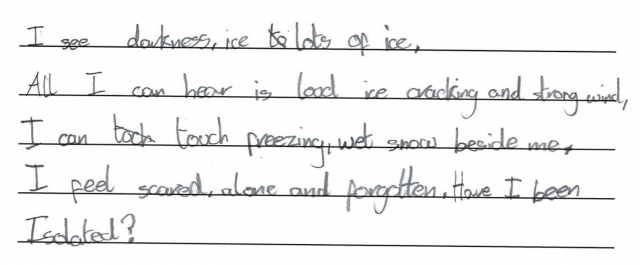 I see darkness, ice to lots of ice,
All I can hear is load ice cracking and strong wind,
I can toch touch freezing, wet snow beside me,
I feel scared, alone and forgotten. Have I been
Isolated?